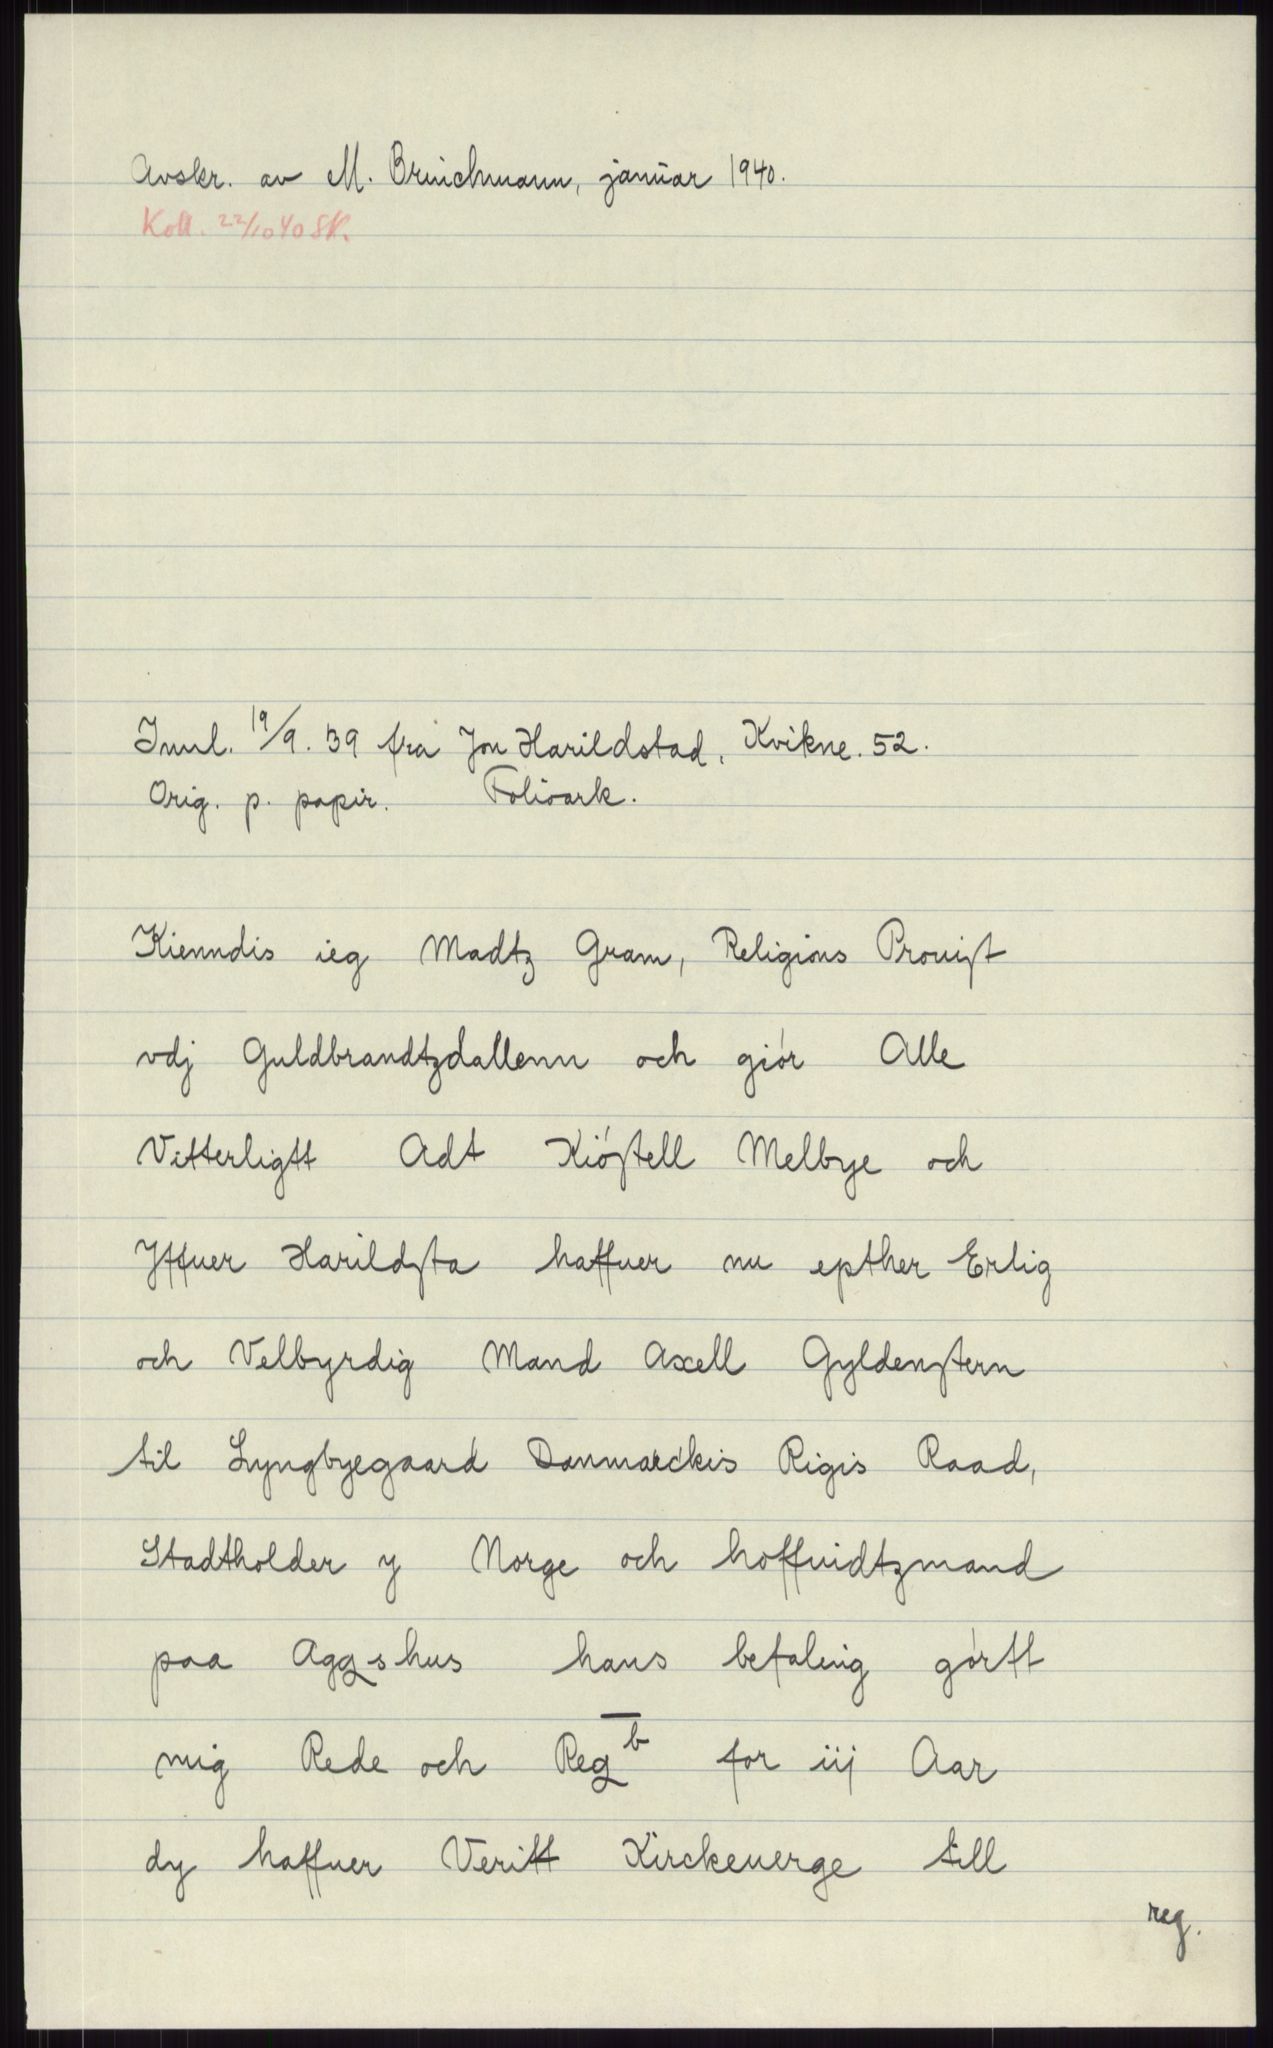 Avskr. av M. Brinchmann, januar 1940.
Koll. 22/10 40 SK.
Innl. 19/9. 39 fra Jon Harildstad, Kvikne. 52.
Orig. p. papir. Folioark.
Kienndis ieg Madtz Gram, Religions Prouist
vdj Guldbrandtzdallenn och giór Alle
Vitterligtt Adt Kióstell Melbye och
Yffuer Harildsta haffuer nu epther Erlig
och Velbyrdig Mand Axell Gyldenstern
til Lyngbyegaard Danmarckis Rigis Raad,
Stadtholder y Norge och hoffuidtzmand
paa Aggshus hans befaling górtt
mig Rede och Regb for iij Aar
dy haffuer Veritt Kirckeuerge till
reg.